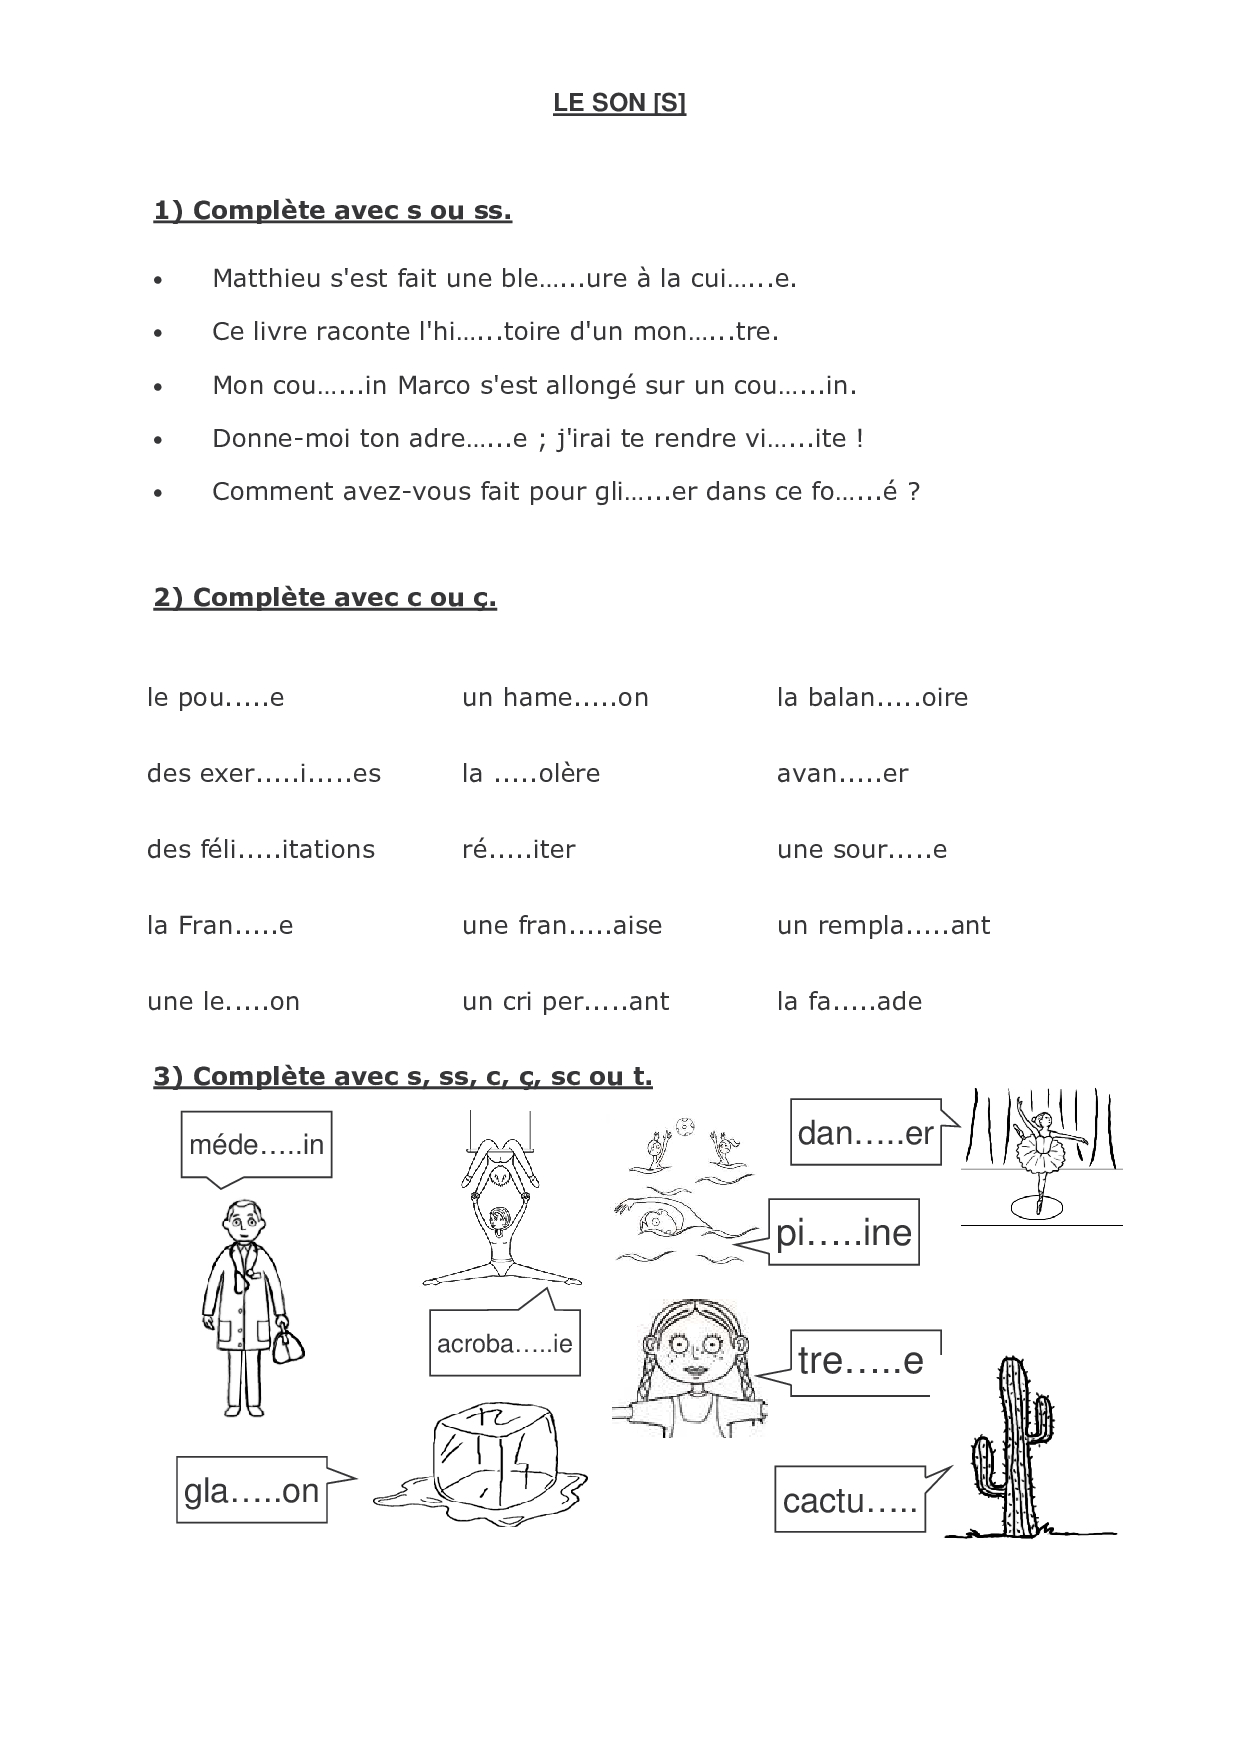 LE SON [S]
1) Complète avec s ou ss.
• Matthieu s'est fait une ble…...ure à la cui…...e.
• Ce livre raconte l'hi…...toire d'un mon…...tre.
• Mon cou…...in Marco s'est allongé sur un cou…...in.
• Donne-moi ton adre…...e ; j'irai te rendre vi…...ite !
• Comment avez-vous fait pour gli…...er dans ce fo…...é ?
2) Complète avec c ou ç.
le pou.....e un hame.....on la balan.....oire
des exer.....i.....es la .....olère avan.....er
des féli.....itations ré.....iter une sour.....e
la Fran.....e une fran.....aise un rempla.....ant
une le.....on un cri per.....ant la fa.....ade
3) Complète avec s, ss, c, ç, sc ou t.
méde…..in
dan…..er
pi…..ine
acroba…..ie
tre…..e
gla…..on
cactu…..